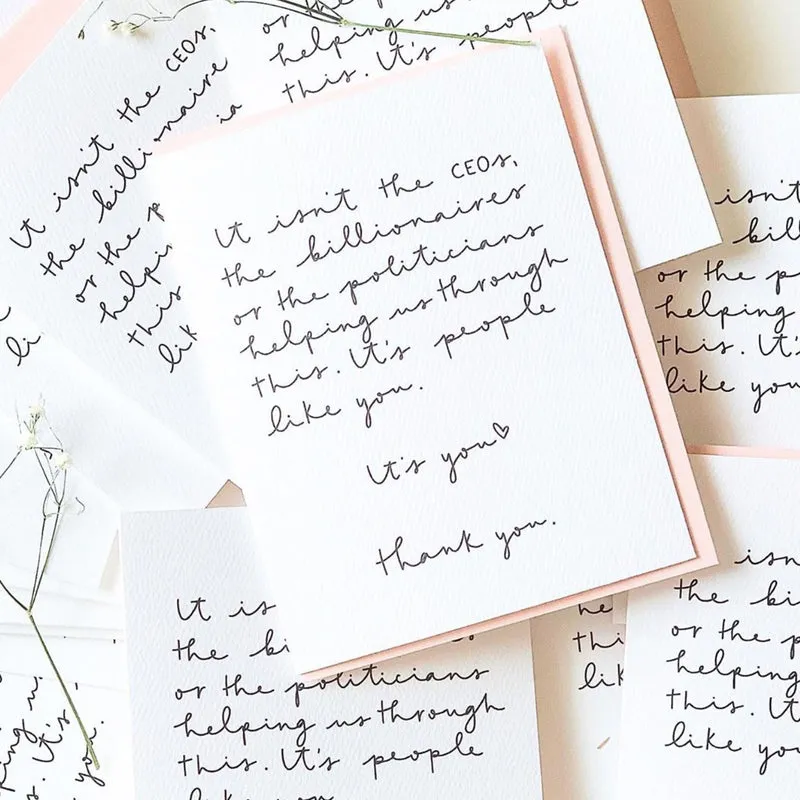 helping us
this. It's people
It isn't the CEOs,
the billi naire
or the p
helpi
this
lik
It isn't the CEOs,
the billionaires
or the politicians
helping us through
this. It's people
like you.
It's you♡
thank you.
isn't
bill
or the p
helping
this. It's
like you
li
It is
the bi
or the politicians
helping us through
this. It's people
like you
he
thi
lik
isn
the bi
or the p
helping
this. It
like you